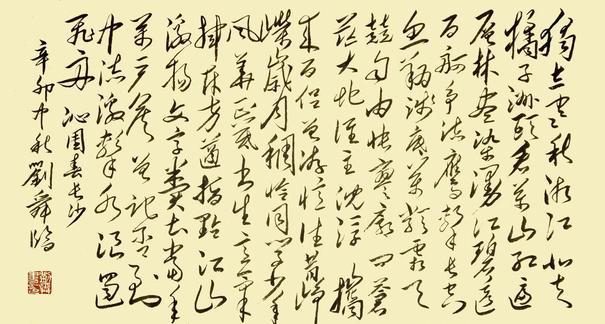 獨立寒秋湘江北去
橘子洲頭看萬山紅遍
層林盡染漫江碧透
百舸爭流鷹擊長空
魚翔淺底萬類霜天
競自由悵寥廓問蒼
茫大地誰主沈浮 攜
來百侶曾游憶往昔崢
嶸歲月稠恰同學少年
風華正茂書生意氣
揮斥方遒指點江山
激揚文字糞土當年
萬戶侯曾記否到
中流擊水浪遏
飛舟 沁園春長沙
辛卯中秋劉舜